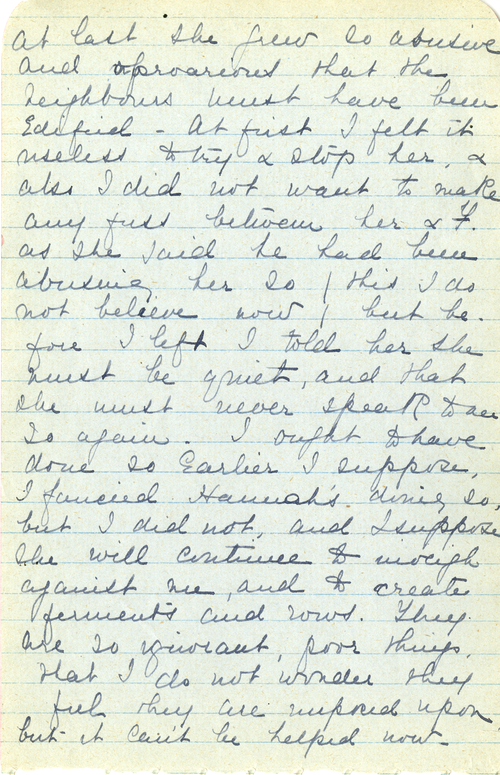 at last she grew so abusive
and uproarious that the
neighbours must have been
Edified - At first I felt it
useless to try & stop her, &
also I did not want to make
any fuss between her & F.
as she said he had been
abusing her so (this I do
not believe now) but be-
fore I left I told her she
must be quiet, and that
she must never speak to me
so again. I ought to have
done so Earlier I suppose,
I fancied Hannah's doing so,
but I did not, and I suppose
she will continue to inveigh
against me, and to create
ferments and rows. They
are so ignorant, poor things,
that I do not wonder they
feel they are imposed upon
but it can't be helped now